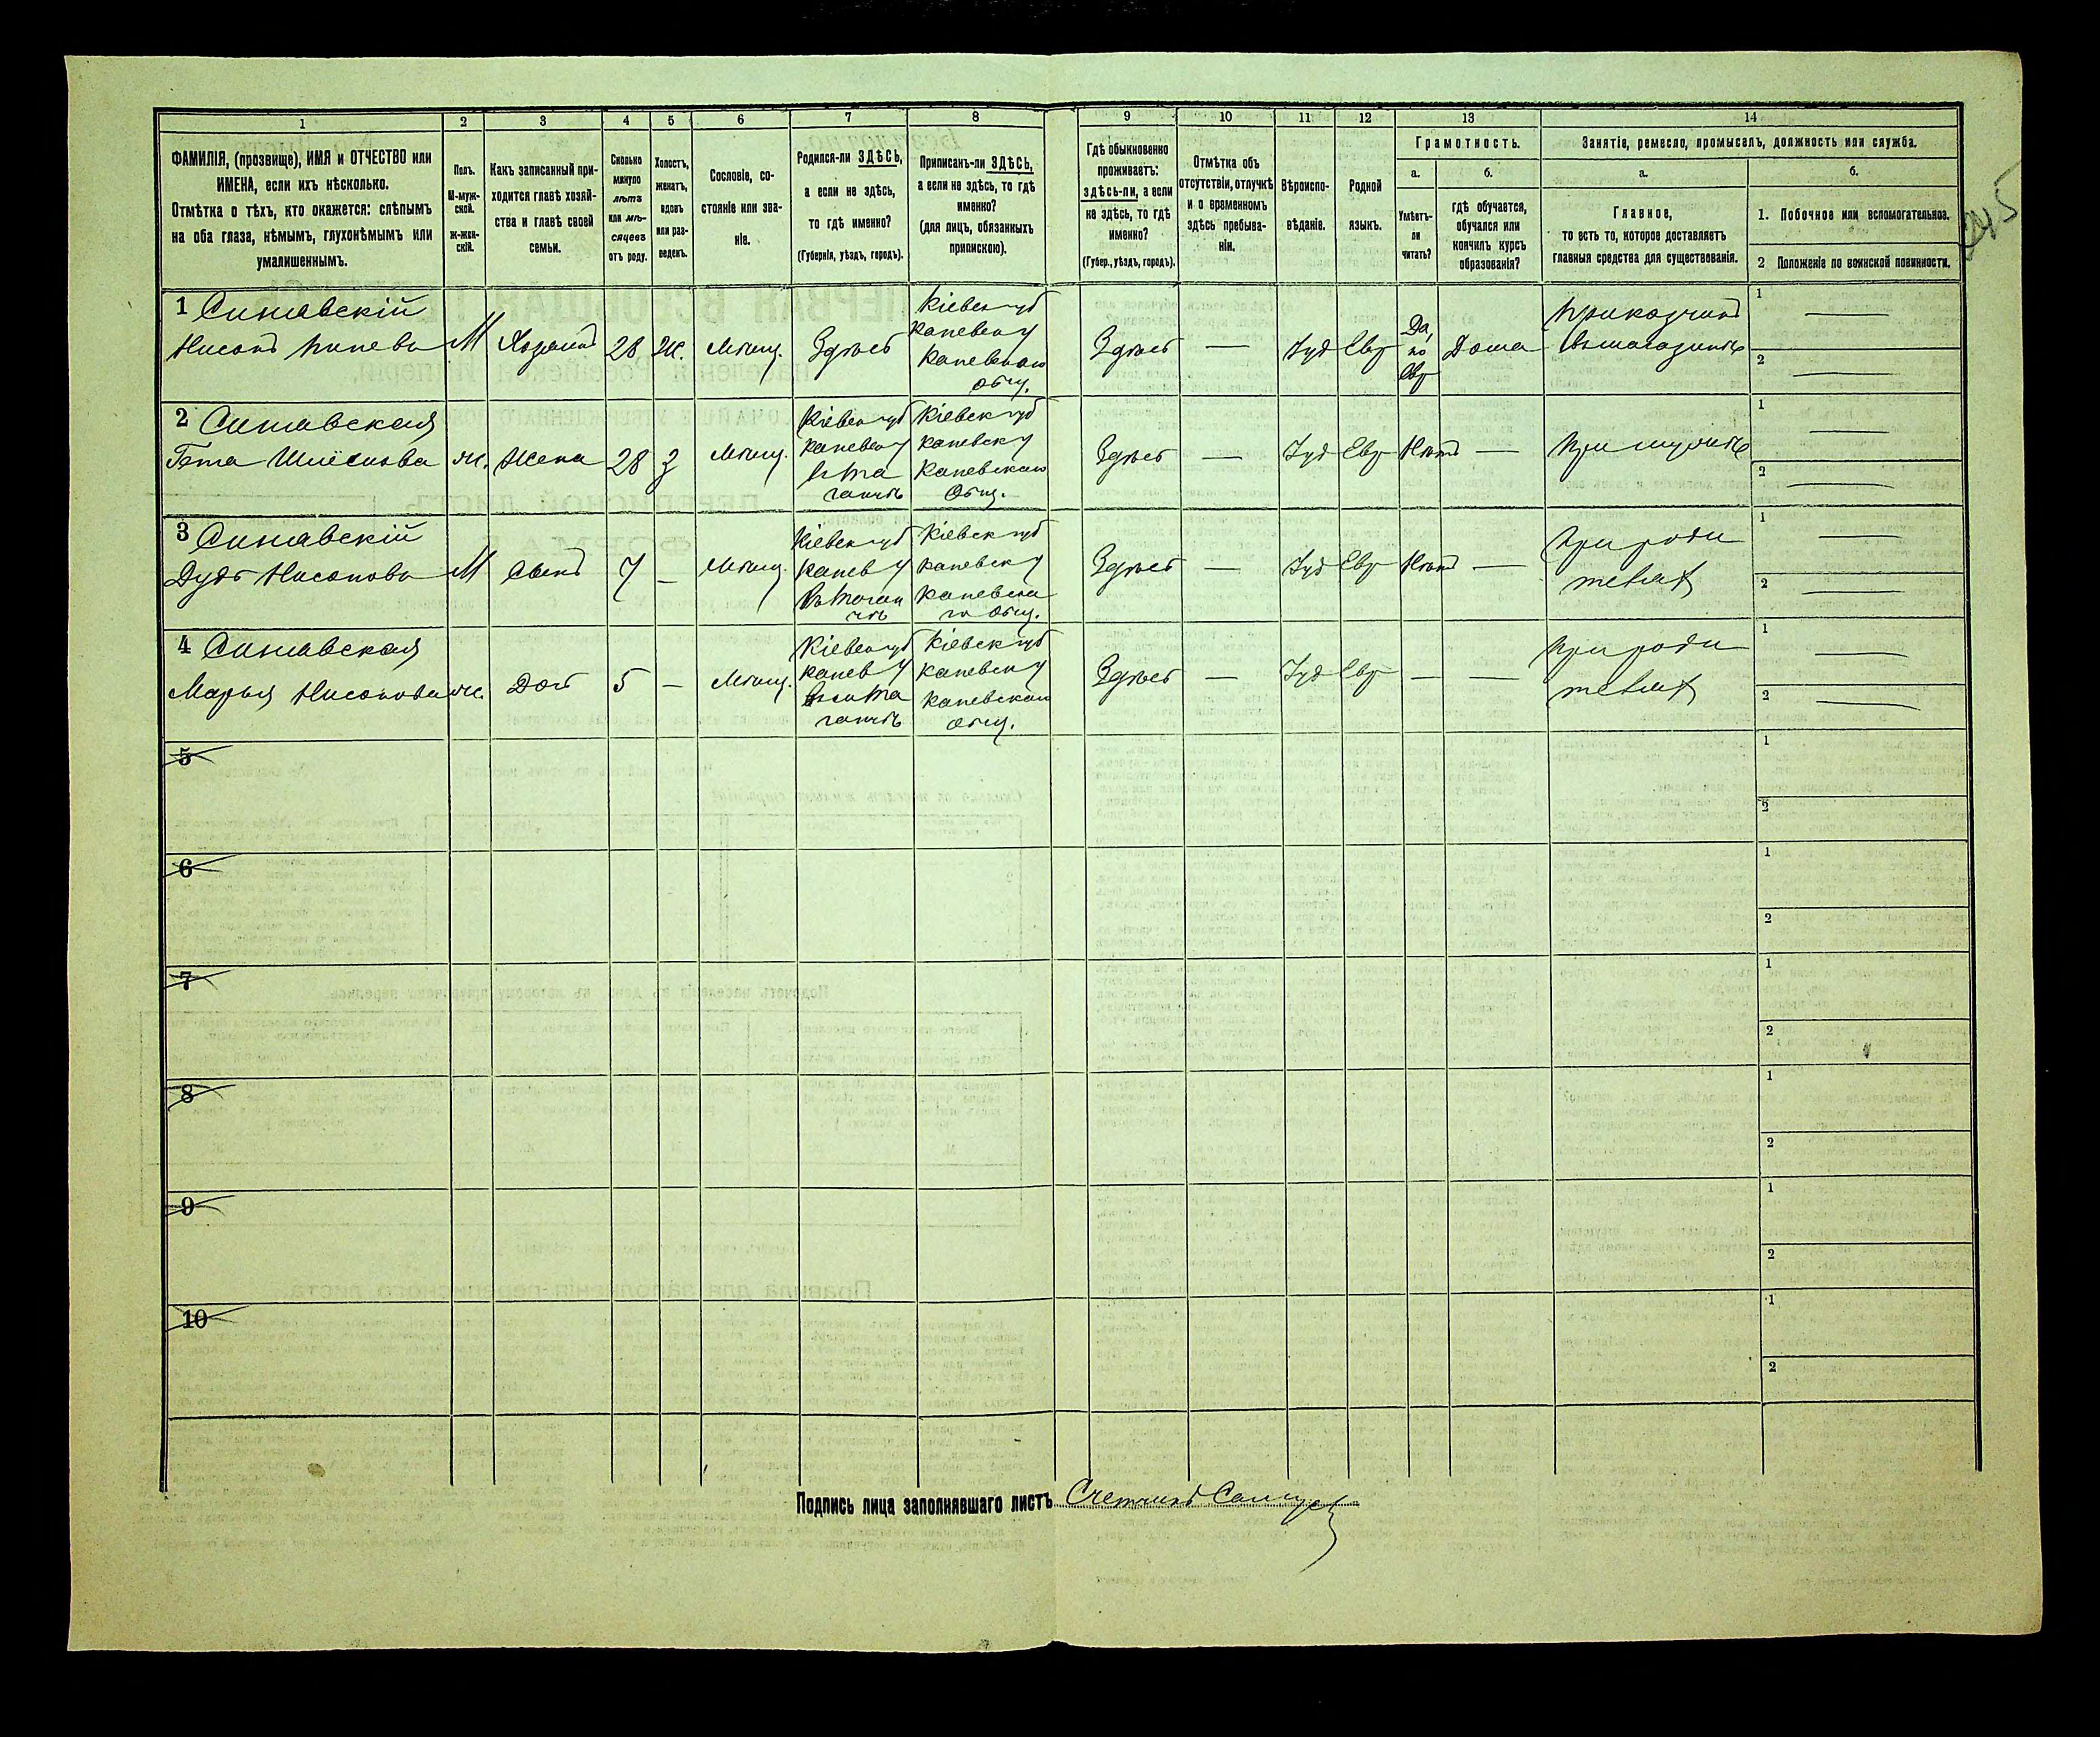 1 2 3 4 5 6 7 8 9 10 11 12 13 14
ФАМИЛІЯ, (прозвище), ИМЯ и ОТЧЕСТВО или
ИМЕНА, если ихъ нѣсколько.
Отмѣтка о тѣхъ, кто окажется: слѣпымъ
на оба глаза, нѣмымъ, глухонѣмымъ или
умалишеннымъ.
Полъ.
М-муж-
ской.
ж-жен-
скій.
Какъ записанный при-
ходится главѣ хозяй-
ства и главѣ своей
семьи.
Сколько
минуло
лѣтъ
или мѣ-
сяцевъ
отъ роду.
Холостъ,
женатъ,
вдовъ
или раз-
веденъ.
Сословіе, со-
стояніе или зва-
ніе.
Родился-ли ЗДѢСЬ,
а если не здѣсь,
то гдѣ именно?
(Губернія, уѣздъ, городъ).
Приписанъ-ли ЗДѢСЬ,
а если не здѣсь, то гдѣ
именно?
(для лицъ, обязанныхъ
припискою).
Гдѣ обыкновенно
проживаетъ:
здѣсь-ли, а если
не здѣсь, то гдѣ
именно?
(Губер., уѣздъ, городъ).
Отмѣтка объ
отсутствіи, отлучкѣ
и о временномъ
здѣсь пребыва-
ніи.
Вѣроиспо-
вѣданіе.
Родной
языкъ.
Грамотность.
а.
Умѣетъ-
ли
читать?
б.
гдѣ обучается,
обучался или
кончилъ курсъ
образованія?
Занятіе, ремесло, промыселъ, должность или служба.
а.
Главное,
то есть то, которое доставляетъ
главныя средства для существованія.
б.
1. Побочное или вспомогательное.
2 Положеніе по воинской повинности.
1 Синявскій
Нисонъ М Хозяинъ 28 Ж. Мѣщ. Здѣсь
Кіевск губ
Каневск у
Каневскаго
общ.
Здѣсь — Іуд Евр
Да,
по
Евр
Дома
Приказчикъ
въ магазинѣ
1 —
2 —
2 Синявская
Гета ж. Жена 28 З Мѣщ.
Кіевск губ
Каневск у
въ Та
ганчѣ
Кіевск губ
Каневск у
Каневскаго
Общ.
Здѣсь — Іуд Евр Нѣтъ — При мужѣ
1 —
2 —
3 Синявскій
Дудь Нисонова М Сынъ 7 — Мѣщ.
Кіевск губ
Канев у
въ Таган
чѣ
Кіевск губ
Каневск у
Каневска
го Общ.
Здѣсь — Іуд Евр Нѣтъ —
При роди
теляхъ
1 —
2 —
4 Синявская
Марья Нисонова ж. Доч 5 — Мѣщ.
Кіевск губ
Канев у
Та
ганчѣ
Кіевск губ
Каневск у
Каневскаго
общ.
Здѣсь — Іуд Евр — —
При роди
теляхъ
1 —
2 —
5
1
2
6
1
2
7
1
2
8
1
2
9
1
2
10
1
2
Подпись лица заполнявшаго листъ Счетчикъ